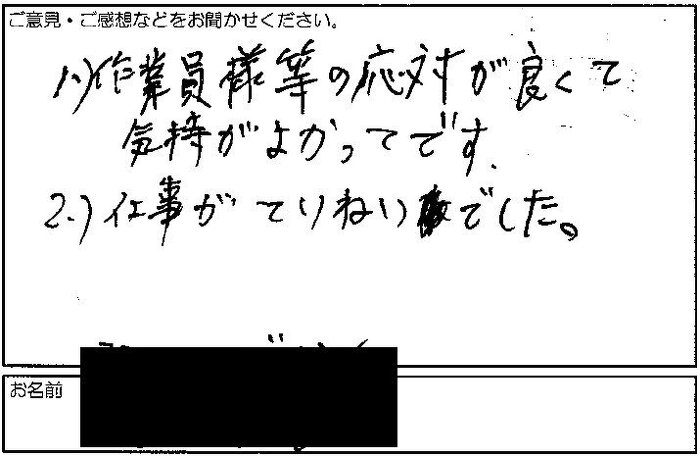 ご意見・ご感想などをお聞かせください。
1.)作業員様等の応対が良くて
気持がよかってです.
2.)仕事がていねいでした。
お名前